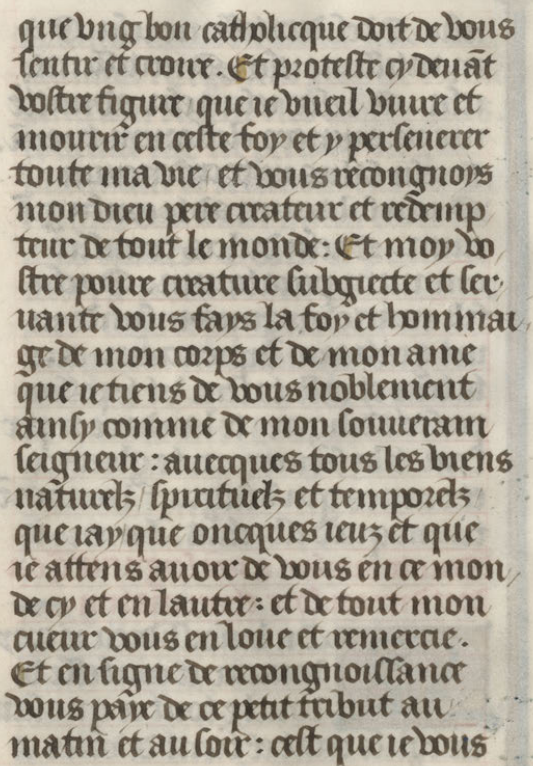 que vng bon catholicque doit de vous
sentir et croire. Et proteste cy deuāt
vostre figure que ie vueil viure et
mourir en ceste foy et y perseuerer
toute ma vie / et vous recongnoys
mon dieu pere createur et redemp
teur de tout le monde: Et moy vo
stre poure creature subgiecte et ser,
uante vous fays la foy et hommai,
ge de mon corps et de mon ame
que ie tiens de vous noblement
ainsy comme de mon souuerain
seigneur: auecques tous les biens
naturelz / spirituelz et temporelz
que iay que oncques ieuz et que
ie attens auoir de vous en ce mon,
de cy et en lautre: et de tout mon
cueur vous en loue et remercie.
Et en signe de recongnoissance
vous paye de ce petit tribut au
matin et au soir: cest que ie vous